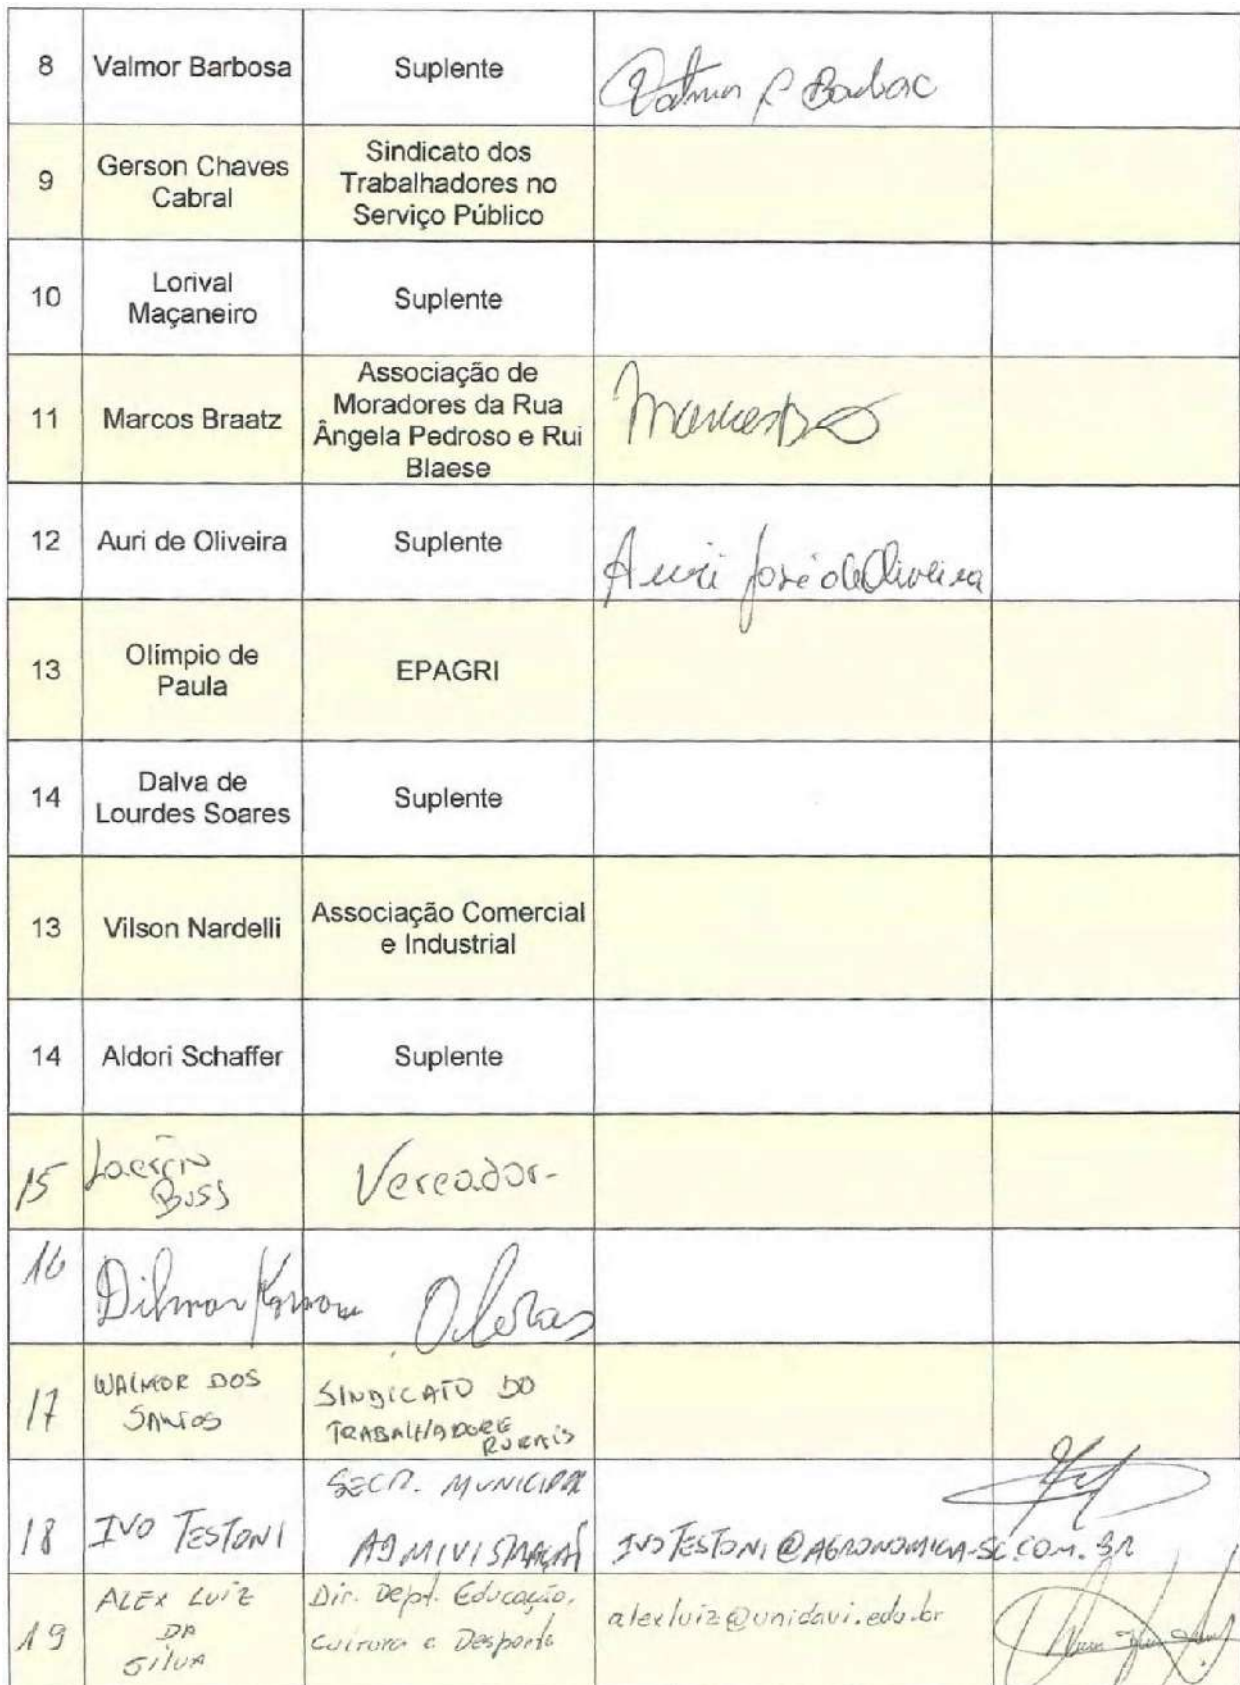 8 Valmor Barbosa Suplente
9 Gerson Chaves Cabral Sindicato dos Trabalhadores no Serviço Público
10 Lorival Maçaneiro Suplente
11 Marcos Braatz Associação de Moradores da Rua Ângela Pedroso e Rui Blaese
12 Auri de Oliveira Suplente Auri José de Oliveira
13 Olímpio de Paula EPAGRI
14 Dalva de Lourdes Soares Suplente
13 Vilson Nardelli Associação Comercial e Industrial
14 Aldori Schaffer Suplente
15 Laércio Buss Vereador-
16 Dilmar
17 WALMOR DOS SANTOS SINDICATO DO TRABALHADORE RURAIS
18 IVO TESTONI SECR. MUNICIPAL IVOTESTONI@AGRONOMICA-SC.COM.BR
19 ALEX LUIZ DA SILVA Dir. Dept. Educação, Cultura e Desporto alexluiz@unidavi.edu.br